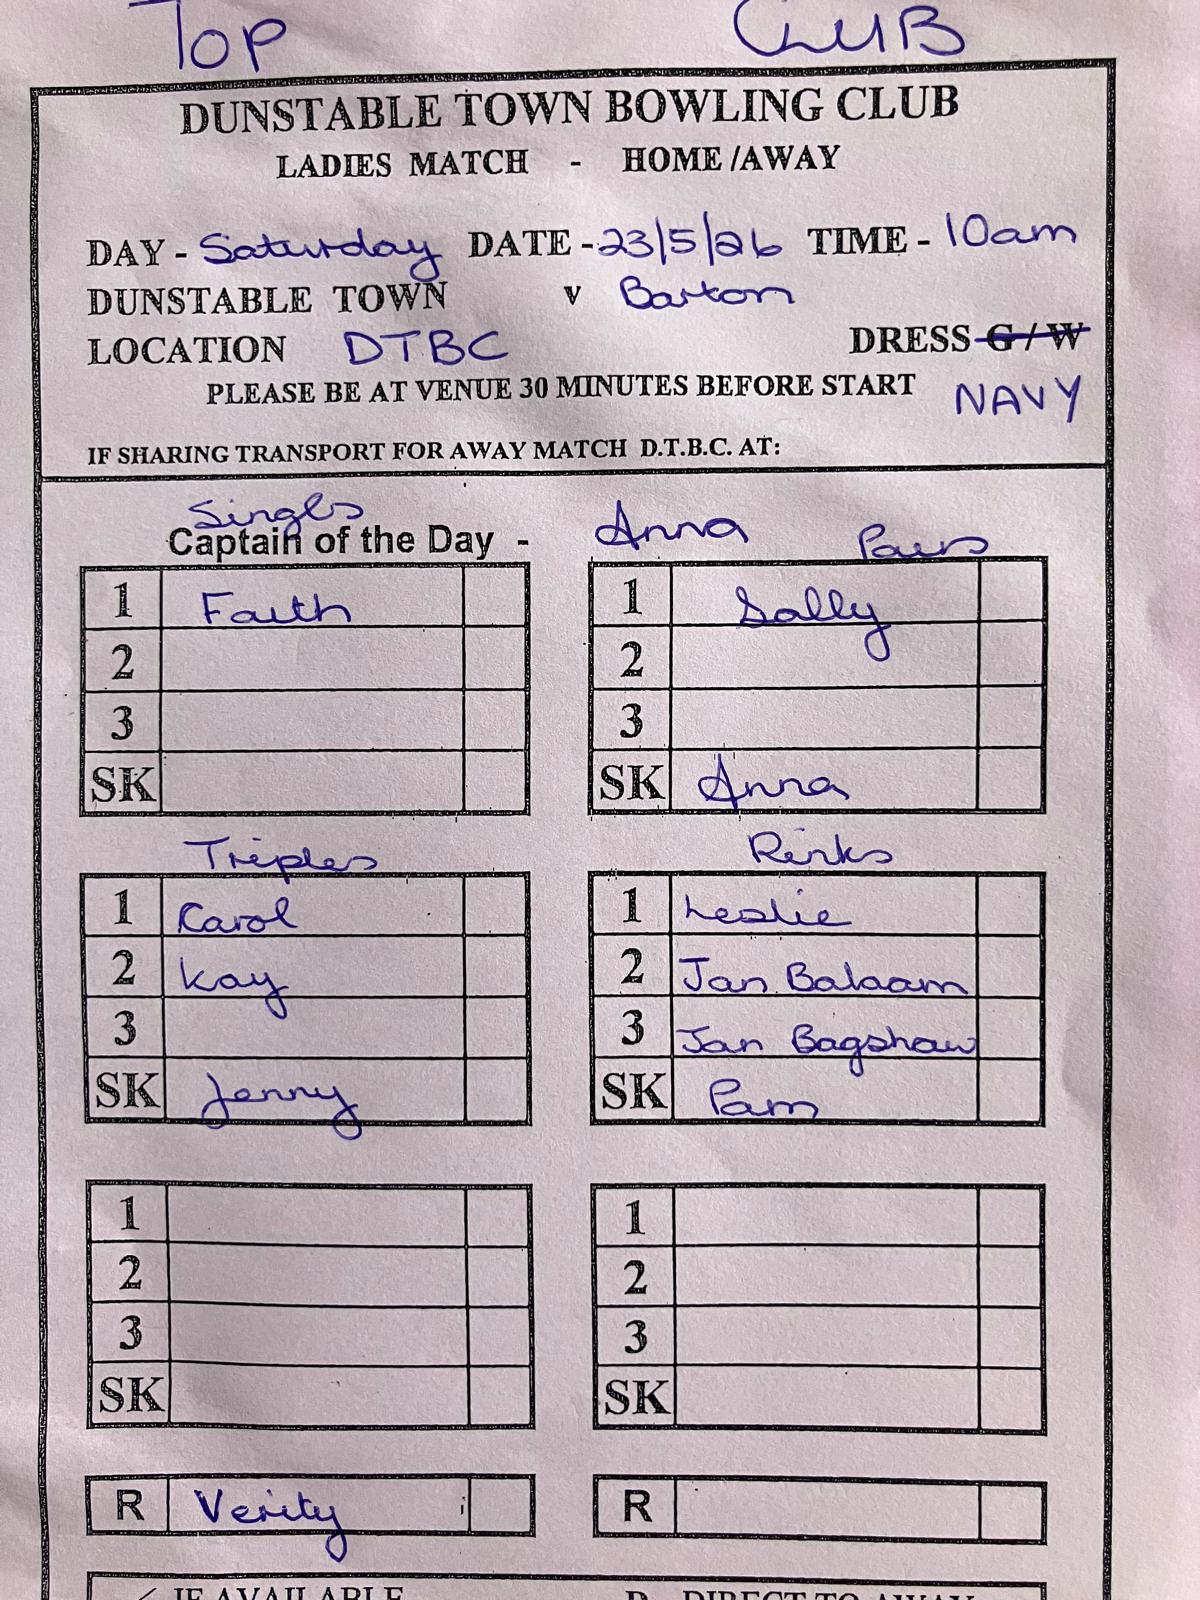 TOP CLUB
DUNSTABLE TOWN BOWLING CLUB
LADIES MATCH - HOME /AWAY
DAY - Saturday DATE - 23/5/26 TIME - 10am
DUNSTABLE TOWN v Barton
LOCATION DTBC DRESS G / W
PLEASE BE AT VENUE 30 MINUTES BEFORE START NAVY
IF SHARING TRANSPORT FOR AWAY MATCH D.T.B.C. AT:
Singles
Captain of the Day - Anna
1 Faith
2
3
SK
Pairs
1 Sally
2
3
SK Anna
Triples
1 Carol
2 Kay
3
SK Jenny
Rinks
1 Leslie
2 Jan Balaam
3 Jan Bagshaw
SK Pam
1
2
3
SK
1
2
3
SK
R Verity
R
✓ IF AVAILABLE D DIRECT TO AWAY